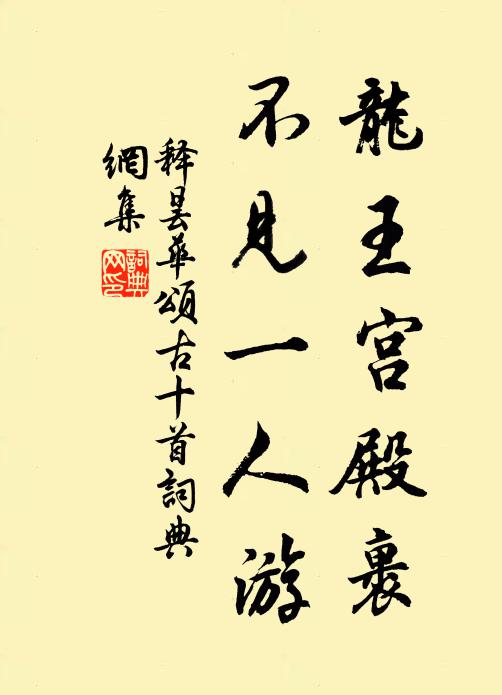 龍王宫殿裹
不見一人游
释昙華頌古十首詞典
網集
詞典
网印